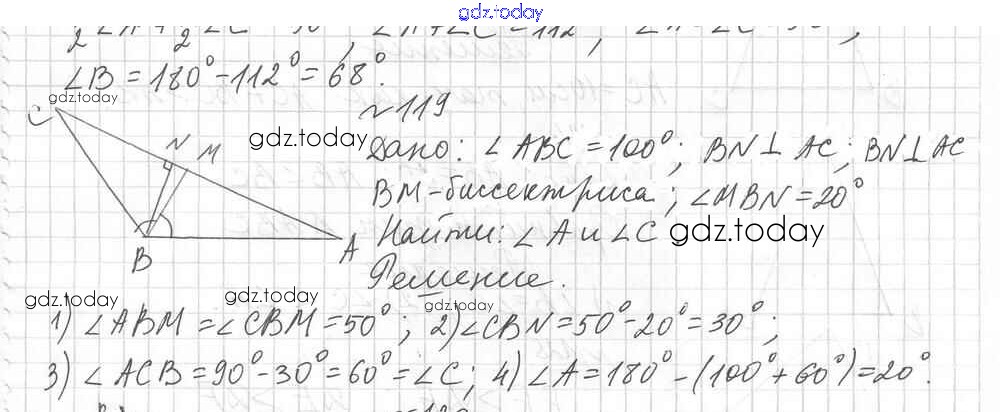 gdz.today
∠B = 180° - 112° = 68°.
gdz.today
№119
C
gdz.today
N M
Дано: ∠ABC = 100°; BN⊥AC; BN⊥AC
BM-биссектриса; ∠MBN = 20°
Найти: ∠A и ∠C gdz.today
B
A
Решение.
gdz.today gdz.today gdz.today
1) ∠ABM = ∠CBM = 50°; 2) ∠CBN = 50° - 20° = 30°;
3) ∠ACB = 90° - 30° = 60° = ∠C; 4) ∠A = 180° - (100° + 60°) = 20°.